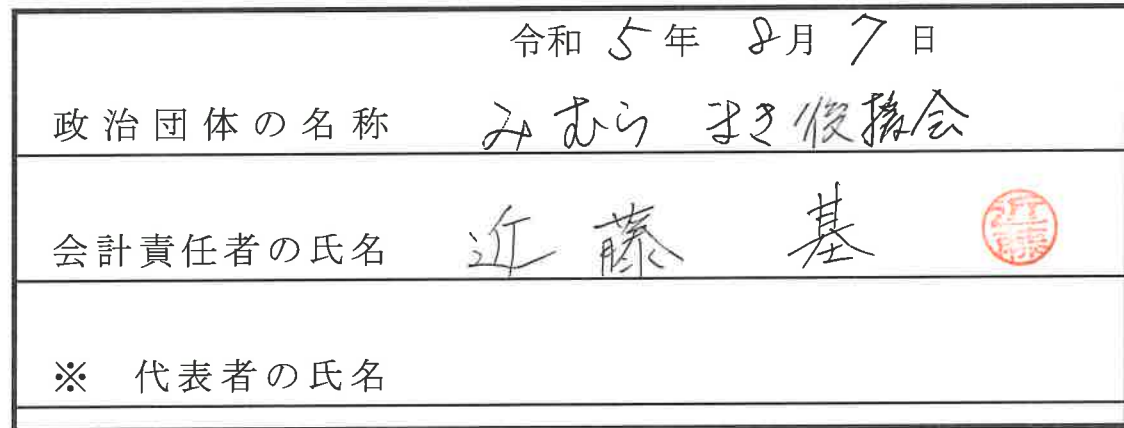 令和 5 年 8月 7 日
政治団体の名称 みむら まき後援会
会計責任者の氏名 近藤 基 近藤
※ 代表者の氏名